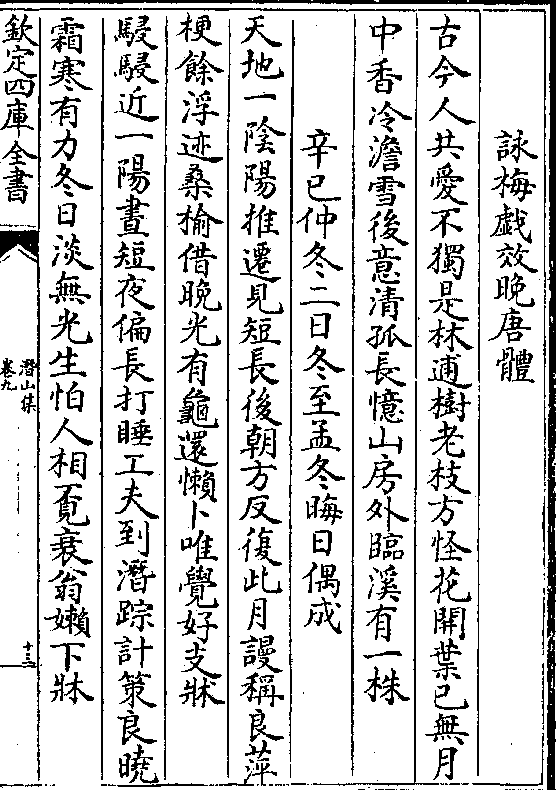 詠梅戯效晚唐體
古今人共愛不獨是林逋樹老枝方怪花開葉已無月
中香冷澹雪後意清孤長憶山房外臨溪有一株
辛巳仲冬二日冬至孟冬晦日偶成
天地一陰陽推遷見短長後朝方反復此月謾稱良萍
梗餘浮迹桑榆借晚光有龜還懶卜唯覺好支牀
駸駸近一陽晝短夜偏長打睡工夫到潛踪計策良曉
霜寒有力冬日淡無光生怕人相覔衰翁嬾下牀
欽定四庫全書
潛山集
卷九
十三